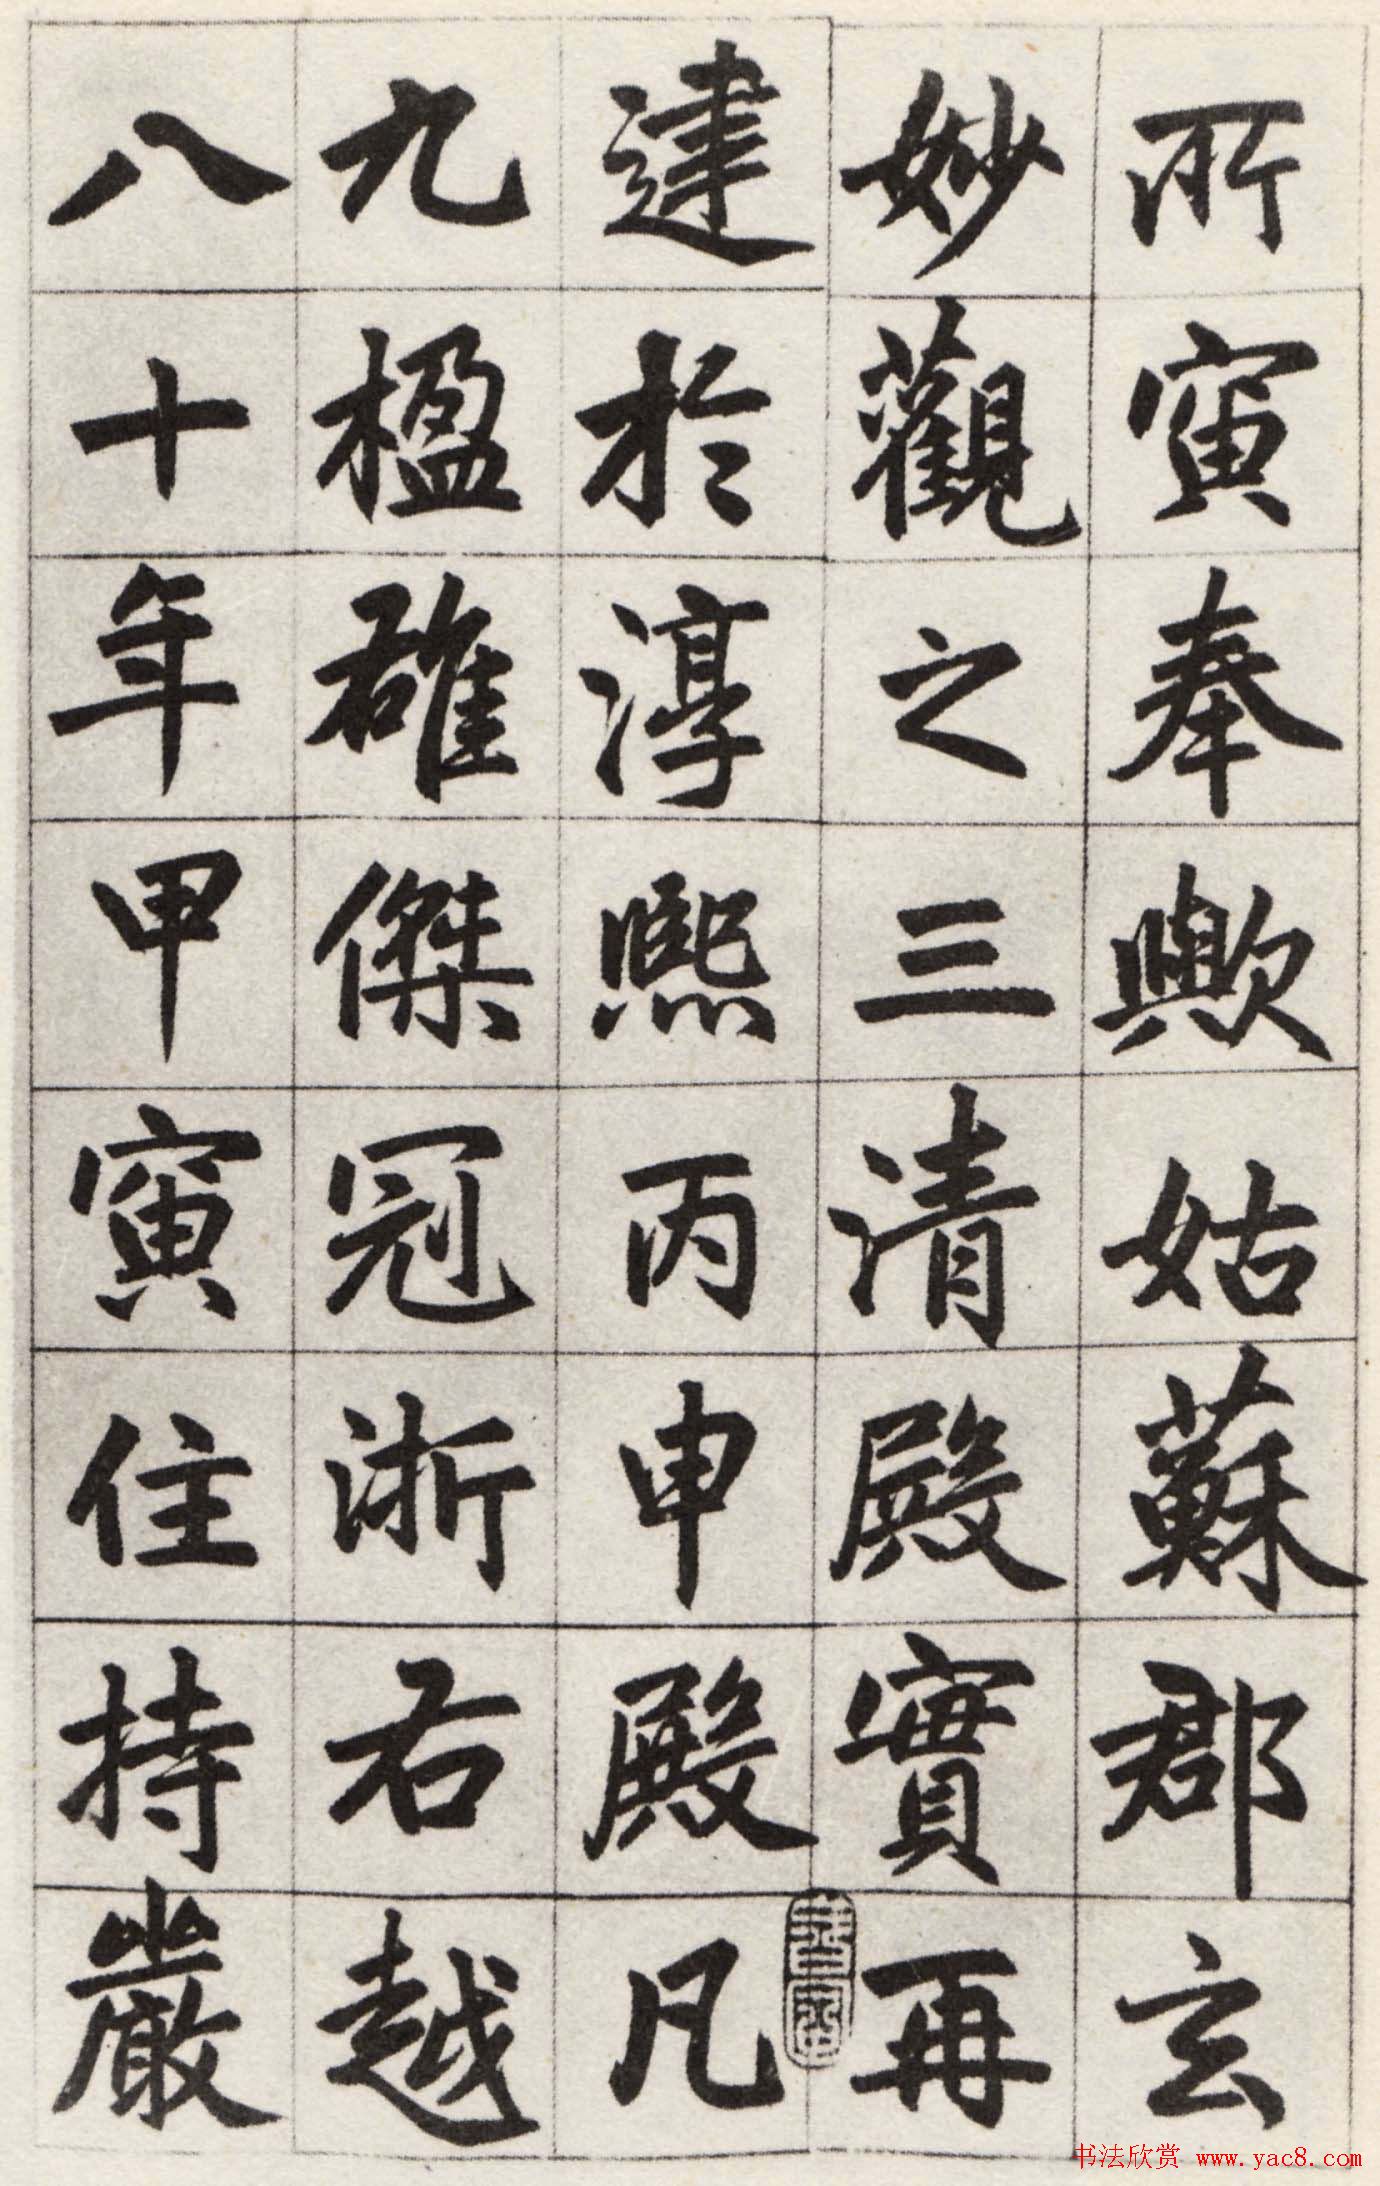 所寅奉歟姑蘇郡玄
妙觀之三清殿實再
建於淳熙丙申殿凡
九楹磪傑冠浙右越
八十年甲寅住持嚴
书法欣赏 www.yac8.com